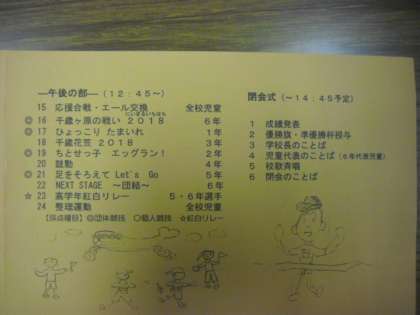 ―午後の部―(12:45~)
15 応援合戦・エール交換 全校児童
◎ 16 千歳ヶ原の戦い 2018 6年
◎ 17 ひょっこり たまいれ 1年
18 千歳花笠 2018 3年
◎ 19 ちとせっ子 エッグラン! 2年
20 鼓動 4年
◎ 21 足をそろえて Let's Go 5年
22 NEXT STAGE ~団結~ 6年
☆ 23 高学年紅白リレー 5・6年選手
24 整理運動 全校児童
【採点種技】◎団体競技 ○個人競技 ☆紅白リレー
閉会式(~14:45予定)
1 成績発表
2 優勝旗・準優勝杯授与
3 学校長のことば
4 児童代表のことば(6年代表児童)
5 校歌斉唱
6 閉会のことば